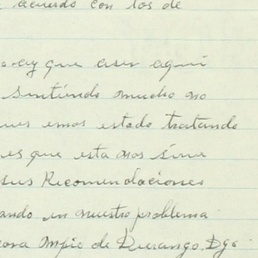 acuerdo con los de
o-ay que aser aqui
sentiendo mucho no
ues emos estado tratando
es que esta nos sirve
sus Recomendaciones
ando en nuestro problema
Mpio de Durango. Dgo.